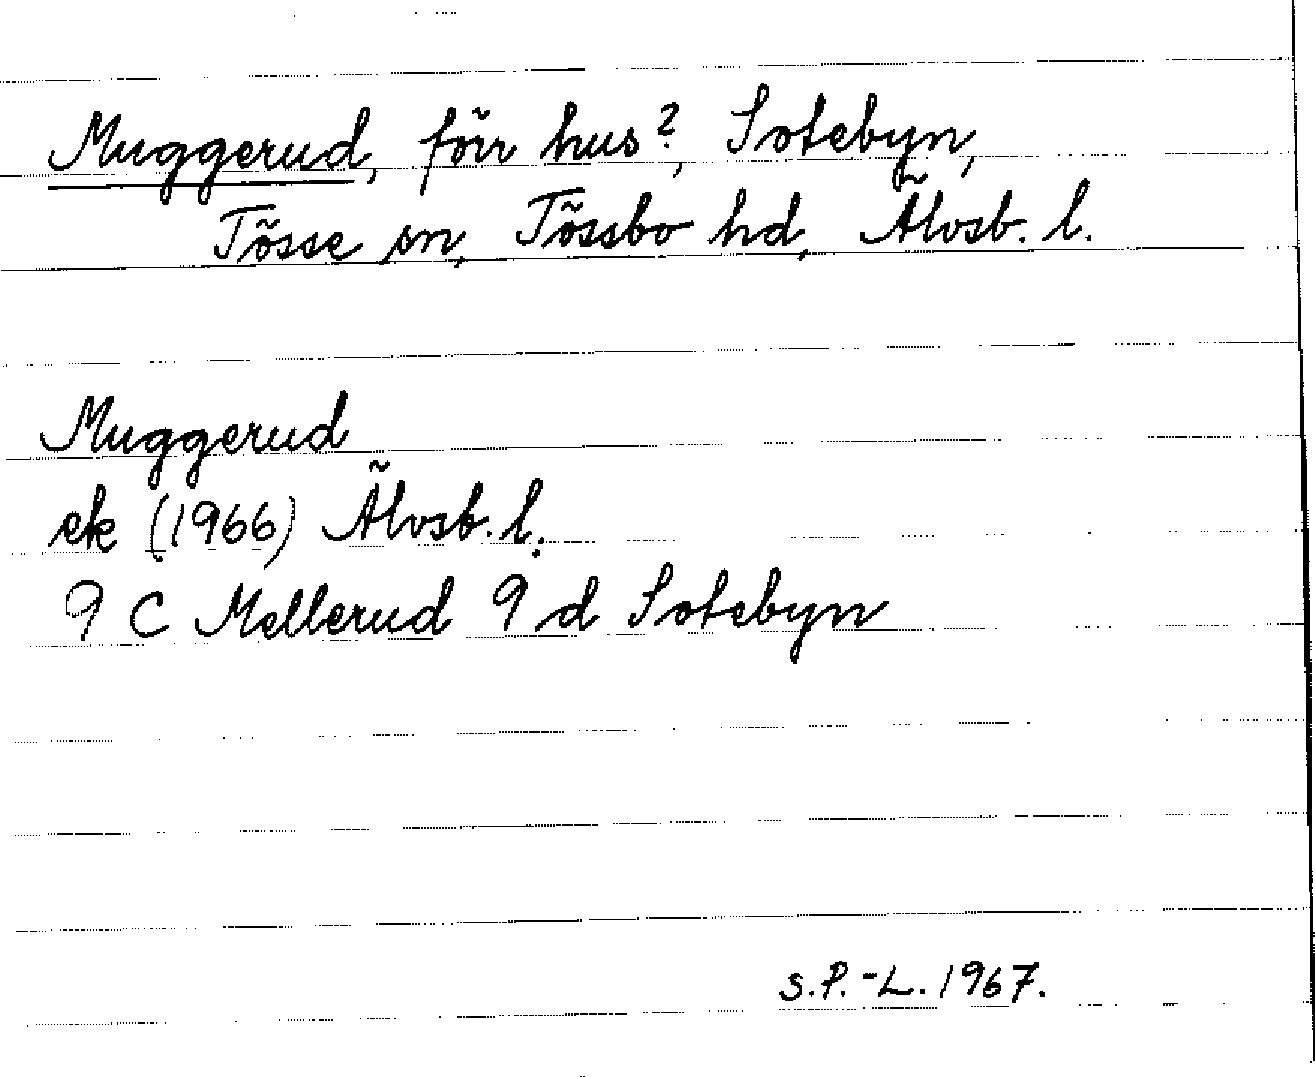 Muggerud, förr hus?, Sotebyn,
Tösse sn, Tössbo hd, Älvsb. l.
Muggerud
ek (1966) Älvsb. l.
9 C Mellerud 9 d Sotebyn
S.P.-L. 1967.